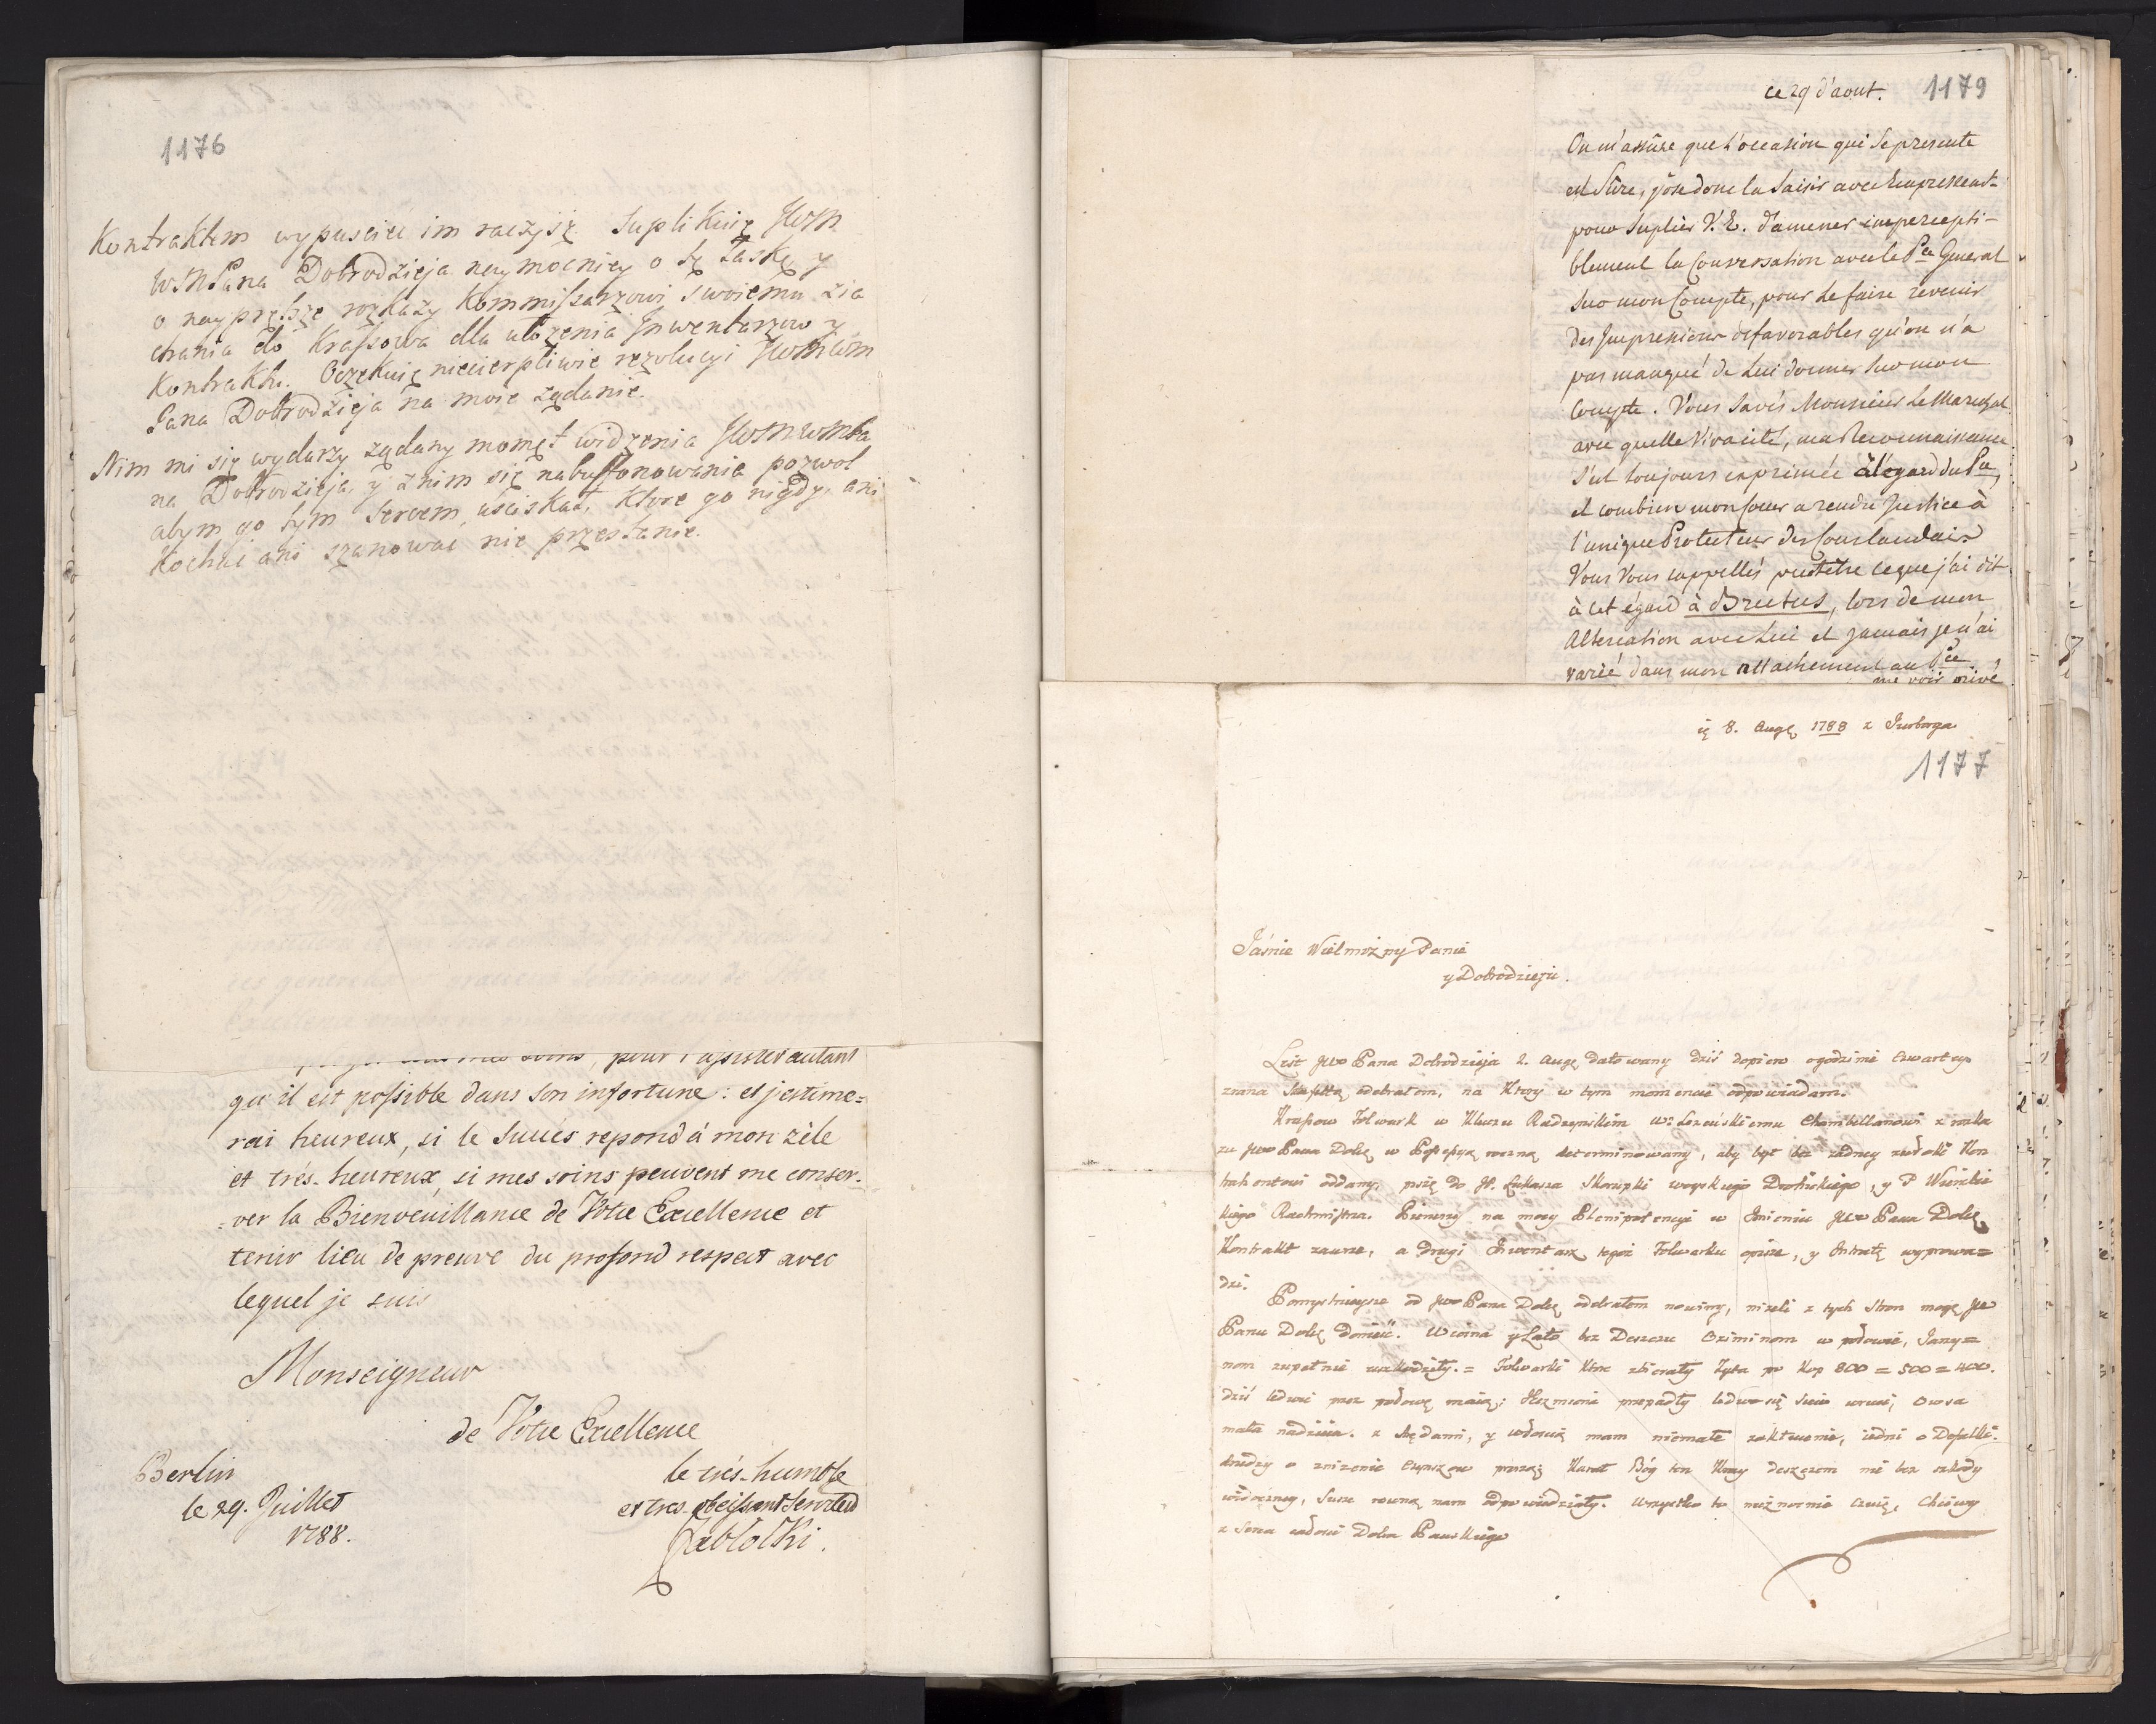 1176
Kontraktem wypuscić im raczysz. Suplikuię JWM
WMPana Dobrodzieja naymocniey o tę Łaskę y
o nayprętsze rozkazy Kommissarzowi swoiemu zia
chania do Krassowa dla ułożenia Inwentarzow y
Kontraktu. Oczekuię niecierpliwie rezolucyi JWMWM
Pana Dobrodzieja na moie żądanie.
Nim mi się wydarzy żądany momęt widzenia JWMWMPa
na Dobrodzieja, y z nim się nabuffonowania pozwol
abym go tym Sercem uściskał, Ktore go nigdy, ani
Kochać ani szanować nie przestanie.
pour l'assister autant
qu'il est possible dans son infortune: et j'estime=
rai heureux, si le Succés repond à mon zéle
et trés-heureux, si mes soins peuvent me conser-
=ver la Bienveuillance de Votre Excellence et
tenir lieu de preuve du profond respect avec
lequel je suis
Monseigneur
de Votre Excellence
Berlin
le 29. Juillet
1788.
le trés-humble
et tres-obeissant Serviteur
Zabłocki.
ce 29 d'aout. 1179
On m'assûre que l'occasion qui se presente
est Sûre, j'ose donc la Saisir avec Empressent-
pour Suplier V. E. d'amener impercepti-
blement la Conversation avec le Pce General
sur mon Compte, pour le faire revenir
des Impressions defavorables qu'on n'a
pas manqué de Lui donner sur mon
Compte. Vous Savés Monsieur le Marechal
avec quelle Vivacité, ma Reconnaissance
S'est toujours exprimée à l'egard du Pce,
et combien mon Coeur a rendu Justice à
l'unique Protecteur des Courlandais
Vous Vous rappellés peutêtre ce que j'ai dit
à cet égard à Brutus, lors de mon
Altercation avec Lui et jamais je n'ai
varié dans mon attachement au Pce.
me voir privé
8. Augę 1788 z Jurborga
1177
Jaśnie Wielmożny Panie
y Dobrodzieju.
List JW Pana Dobrodzieja 2. Augę datowany dziś dopiero o godzinie czwartey
zrana Sztafettą odebrałem, na Ktory w tym momencie odpowiadam.
Krassow Folwark w Kluczu Radzynskim Chambellanowi z rozka
zu JW Pana Dobę w Possessyą roczną determinowany, aby był bez żadney zwłoki Kon
trahentowi oddany, piszę do Łukasza Skorupki woyskiego y P Wierzbic
kiego Rachmistrza. Pierwszy na mocy Plenipotencyi w Imieniu JW Pana Dobę
Kontrakt zawrze, a drugi Inwentarz tegoż Folwarku opisze, y Intratę wyprowa=
dzi.
Pomyslnieysze od JW Pana Dobę odebrałem nowiny, niżeli z tych Stron mogę JW
Panu Dobę donieść. Wiosna y Lato bez Deszczu Oziminom w połowie, Jarzy=
nom zupełnie uszkodziły. = Folwarki Ktore zbierały Żyta po Kop 800 = 500 = 400.
dziś ledwie przez połowę maią; Jęczmiona przepadły ledwo się Siew wroci, Owsa
mała nadzieia. y mam niemałe iedni o Defalki.
drudzy o zniżenie Czynszow proszą; Karał Bóg ten Kray deszczem nie bez szkody
widoczney, Susze rowną nam odpowiedziały. Wszystko to nieznośnie czuię, Chciwy
z Serca Dobra Pańskiego